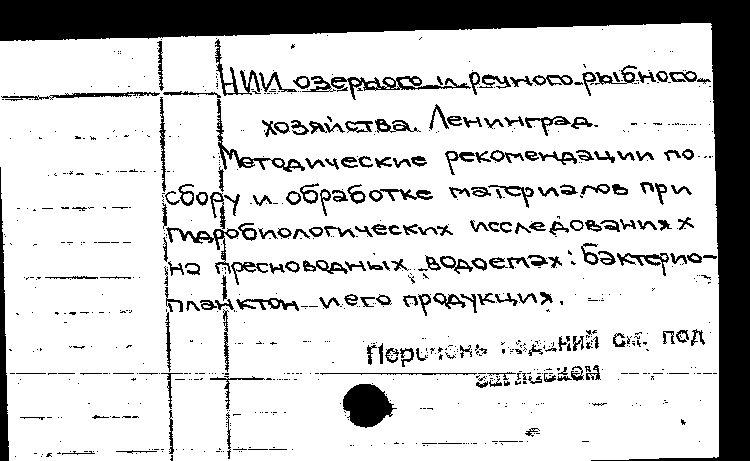 НИИ озерного и речного рыбного
хозяйства. Ленинград.
Методические рекомендации по
сбору и обработке материалов при
гидробиологических исследованиях
на пресноводных водоемах: бактерио-
планктон и его продукция.
Перечень изданий см. под
заглавием